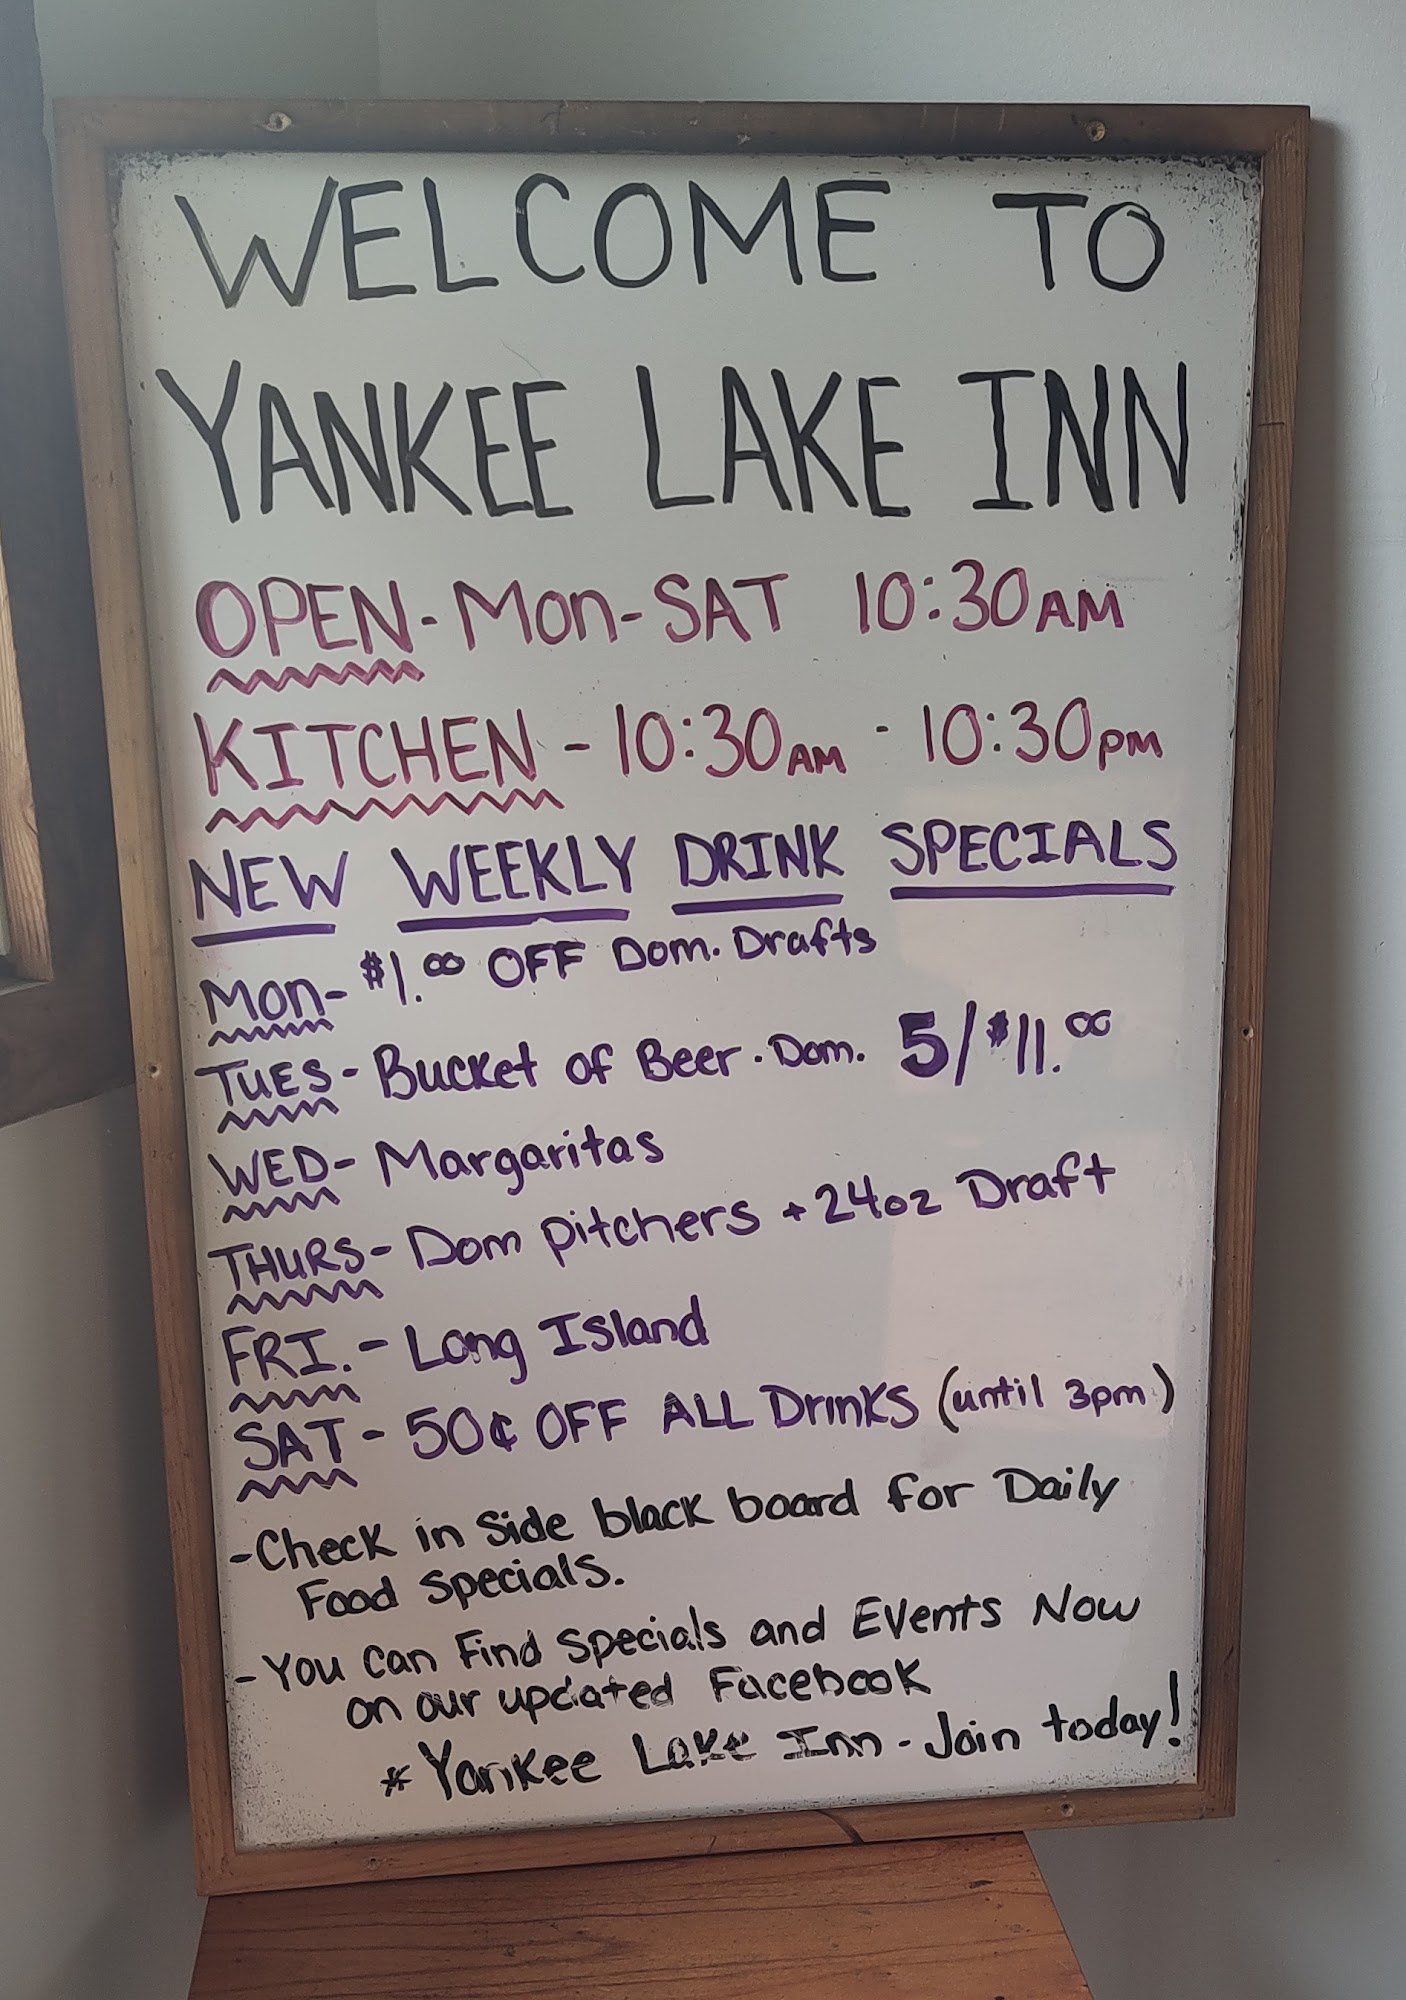 WELCOME TO
YANKEE LAKE INN
OPEN - Mon - SAT 10:30 AM
KITCHEN - 10:30 AM - 10:30 PM
NEW WEEKLY DRINK SPECIALS
Mon - $1.00 OFF Dom. Drafts
TUES - Bucket of Beer - Dom. 5/$11.00
WED - Margaritas
THURS - Dom Pitchers + 24oz Draft
FRI. - Long Island
SAT - 50¢ OFF ALL Drinks (until 3pm)
- Check in Side black board for Daily
Food Specials.
- You Can Find Specials and Events Now
on our updated Facebook
* Yankee Lake Inn - Join today!